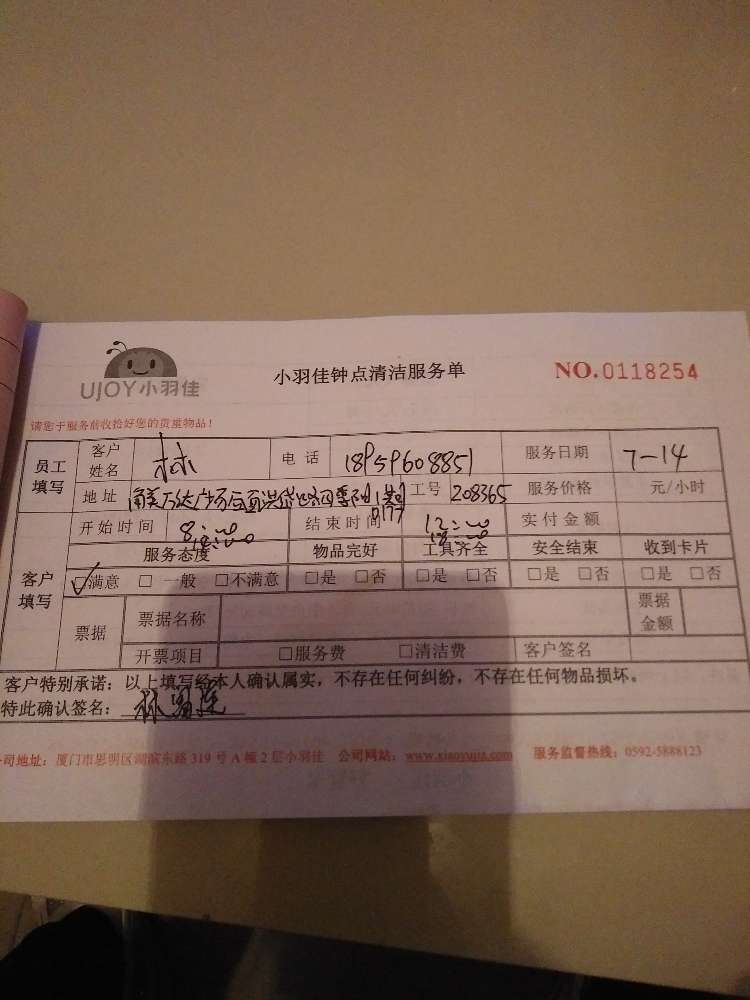 UJOY小羽佳
小羽佳钟点清洁服务单
NO.0118254
请您于服务前收拾好您的贵重物品!
员工填写 客户姓名 林 电话 18959608851 服务日期 7-14
地址 角美万达广场后面 工号 208365 服务价格 元/小时
开始时间 8:00 结束时间 12:00 实付金额
14:00 18:00
客户填写 服务态度 物品完好 工具齐全 安全结束 收到卡片
☑满意 □一般 □不满意 □是 □否 □是 □否 □是 □否 □是 □否
票据 票据名称 票据金额
开票项目 □服务费 □清洁费 客户签名
客户特别承诺:以上填写经本人确认属实,不存在任何纠纷,不存在任何物品损坏。
特此确认签名:
司地址:厦门市思明区湖滨东路319号A幢2层小羽佳 公司网站:www.xiaoyujia.com 服务监督热线:0592-5888123